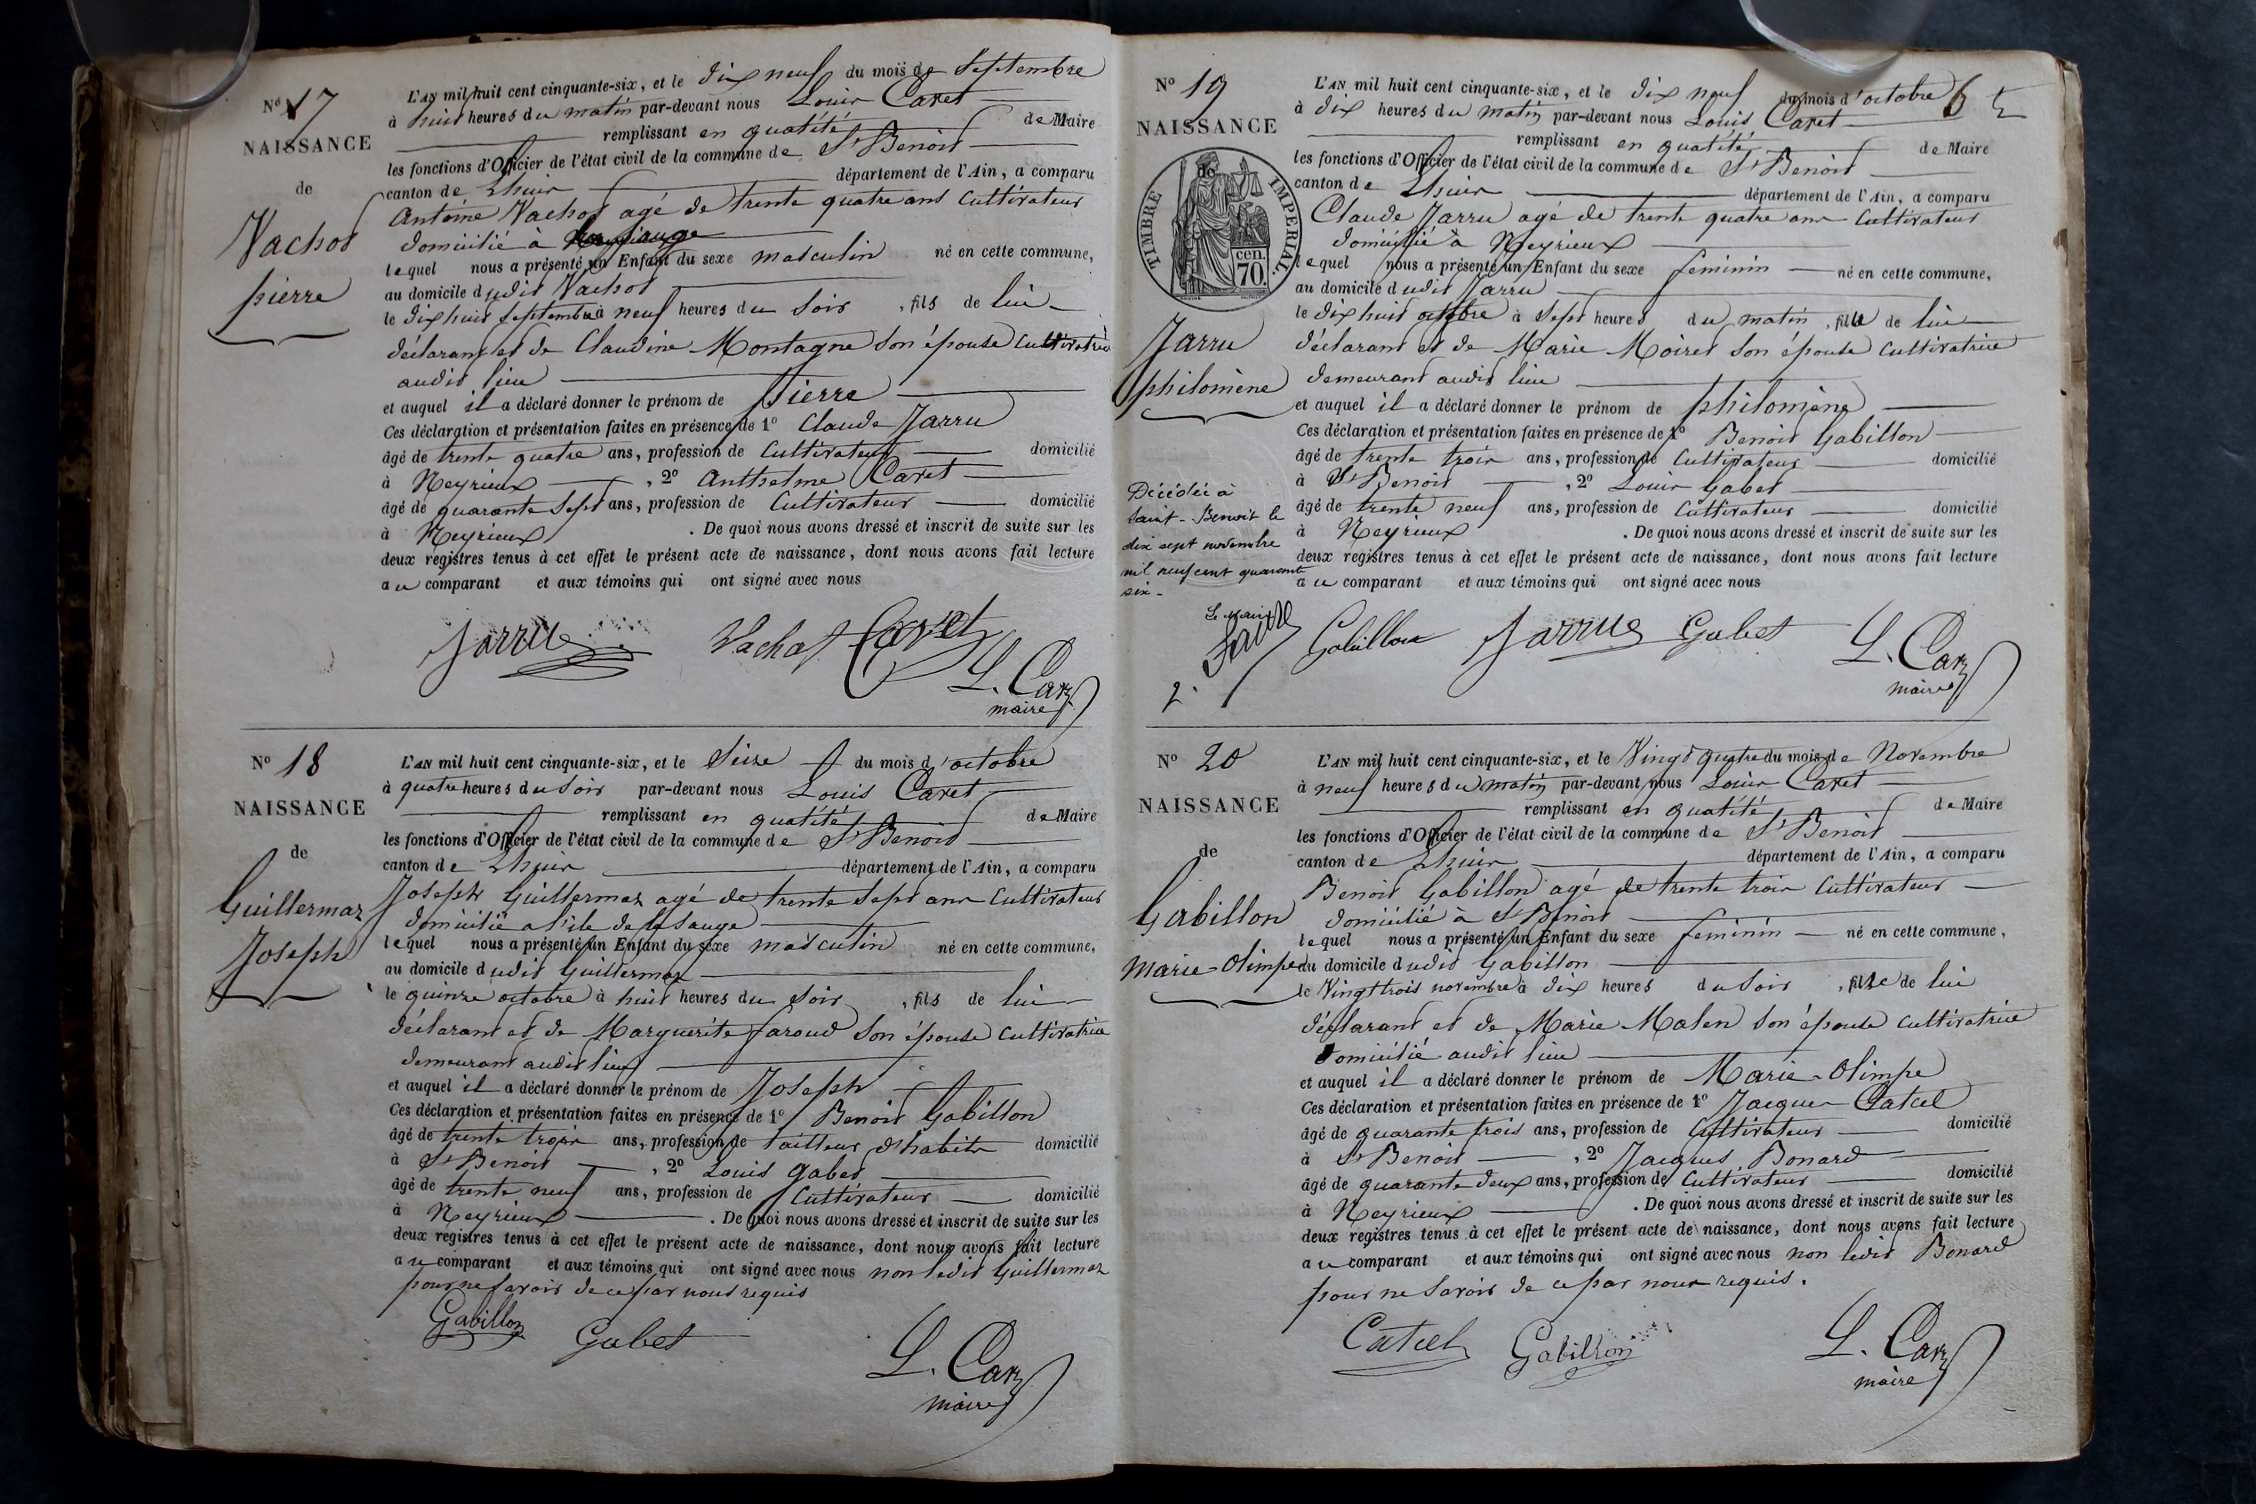 No 17
NAISSANCE
de
Vachot
pierre
L'AN mil huit cent cinquante-six, et le dix neuf du mois de Septembre
à huit heures du matin par-devant nous Louis Cavet
remplissant en quatité de Maire
les fonctions d'Officier de l'état civil de la commune de St Benoit
canton de Lhuis département de l'Ain, a comparu
Antoine Vachot agé de trente quatre ans Cultivateur
domicilié à
lequel nous a présenté un Enfant du sexe masculin né en cette commune,
au domicile dudit Vachot
le dix huit Septembre à neuf heures du soir, fils de lui
déclarant et de Claudine Montagne son épouse Cultivatrice
audit lieu
et auquel il a déclaré donner le prénom de Pierre
Ces déclaration et présentation faites en présence de 1o Claude Jarru
âgé de trente quatre ans, profession de Cultivateur domicilié
à Neyrieux, 2o Anthelme Cavet
âgé de quarante Sept ans, profession de Cultivateur domicilié
à Neyrieux. De quoi nous avons dressé et inscrit de suite sur les
deux registres tenus à cet effet le présent acte de naissance, dont nous avons fait lecture
au comparant et aux témoins qui ont signé avec nous
Jarru Vachot Cavet
L. Cavet
maire
No 18
NAISSANCE
de
Guillermaz
Joseph
L'AN mil huit cent cinquante-six, et le Seize du mois d'octobre
à quatre heures du Soir par-devant nous Louis Cavet
remplissant en quatité de Maire
les fonctions d'Officier de l'état civil de la commune de St Benoit
canton de Lhuis département de l'Ain, a comparu
Joseph Guillermaz agé de trente Sept ans Cultivateur
domicilié a l'ile de la Sauge
lequel nous a présenté un Enfant du sexe masculin né en cette commune,
au domicile dudit Guillermaz
le quinze octobre à huit heures du soir, fils de lui
déclarant et de Marguerite faroud son épouse Cultivatrice
demeurant audit lieu
et auquel il a déclaré donner le prénom de Joseph
Ces déclaration et présentation faites en présence de 1o Benoit Gabillon
âgé de trente trois ans, profession de tailleur d'habits domicilié
à St Benoit, 2o Louis Gabet
âgé de trente neuf ans, profession de Cultivateur domicilié
à Neyrieux. De quoi nous avons dressé et inscrit de suite sur les
deux registres tenus à cet effet le présent acte de naissance, dont nous avons fait lecture
au comparant et aux témoins qui ont signé avec nous non ledit Guillermaz
pour ne savoir de ce par nous requis
Gabillon Gabet
L. Cavet
maire
No 19
NAISSANCE
TIMBRE IMPERIAL.
cen.
70.
Jarru
philomène
Décédée à
Saint-Benoit le
dix sept novembre
mil neuf cent quarante
six-
Le Maire
2.
L'AN mil huit cent cinquante-six, et le dix neuf du mois d'octobre 6
à dix heures du matin par-devant nous Louis Cavet
remplissant en quatité de Maire
les fonctions d'Officier de l'état civil de la commune de St Benoit
canton de Lhuis département de l'Ain, a comparu
Claude Jarru agé de trente quatre ans Cultivateur
domicilié à Neyrieux
lequel nous a présenté un Enfant du sexe feminin né en cette commune,
au domicile dudit Jarru
le dix huit octobre à Sept heures du matin, fille de lui
déclarant et de Marie Moiret son épouse Cultivatrice
demeurant audit lieu
et auquel il a déclaré donner le prénom de philomène
Ces déclaration et présentation faites en présence de 1o Benoit Gabillon
âgé de trente trois ans, profession de Cultivateur domicilié
à St Benoit, 2o Louis Gabet
âgé de trente neuf ans, profession de Cultivateur domicilié
à Neyrieux. De quoi nous avons dressé et inscrit de suite sur les
deux registres tenus à cet effet le présent acte de naissance, dont nous avons fait lecture
au comparant et aux témoins qui ont signé avec nous
Gabillon Jarru Gabet
L. Cavet
maire
No 20
NAISSANCE
de
Gabillon
Marie-Olimpe
L'AN mil huit cent cinquante-six, et le Vingt quatre du mois de Novembre
à neuf heures du matin par-devant nous Louis Cavet
remplissant en quatité de Maire
les fonctions d'Officier de l'état civil de la commune de St Benoit
canton de Lhuis département de l'Ain, a comparu
Benoit Gabillon agé de trente trois Cultivateur
domicilié à St Benoit
lequel nous a présenté un Enfant du sexe feminin né en cette commune,
au domicile dudit Gabillon
le Vingt trois novembre à dix heures du Soir, fille de lui
déclarant et de Marie Malen son épouse Cultivatrice
domicilié audit lieu
et auquel il a déclaré donner le prénom de Marie-Olimpe
Ces déclaration et présentation faites en présence de 1o Jacques Catcel
âgé de quarante trois ans, profession de Cultivateur domicilié
à St Benoit, 2o Jacques Bonard
âgé de quarante deux ans, profession de Cultivateur domicilié
à Neyrieux. De quoi nous avons dressé et inscrit de suite sur les
deux registres tenus à cet effet le présent acte de naissance, dont nous avons fait lecture
au comparant et aux témoins qui ont signé avec nous non ledit Bonard
pour ne savoir de ce par nous requis.
Catcel Gabillon
L. Cavet
maire